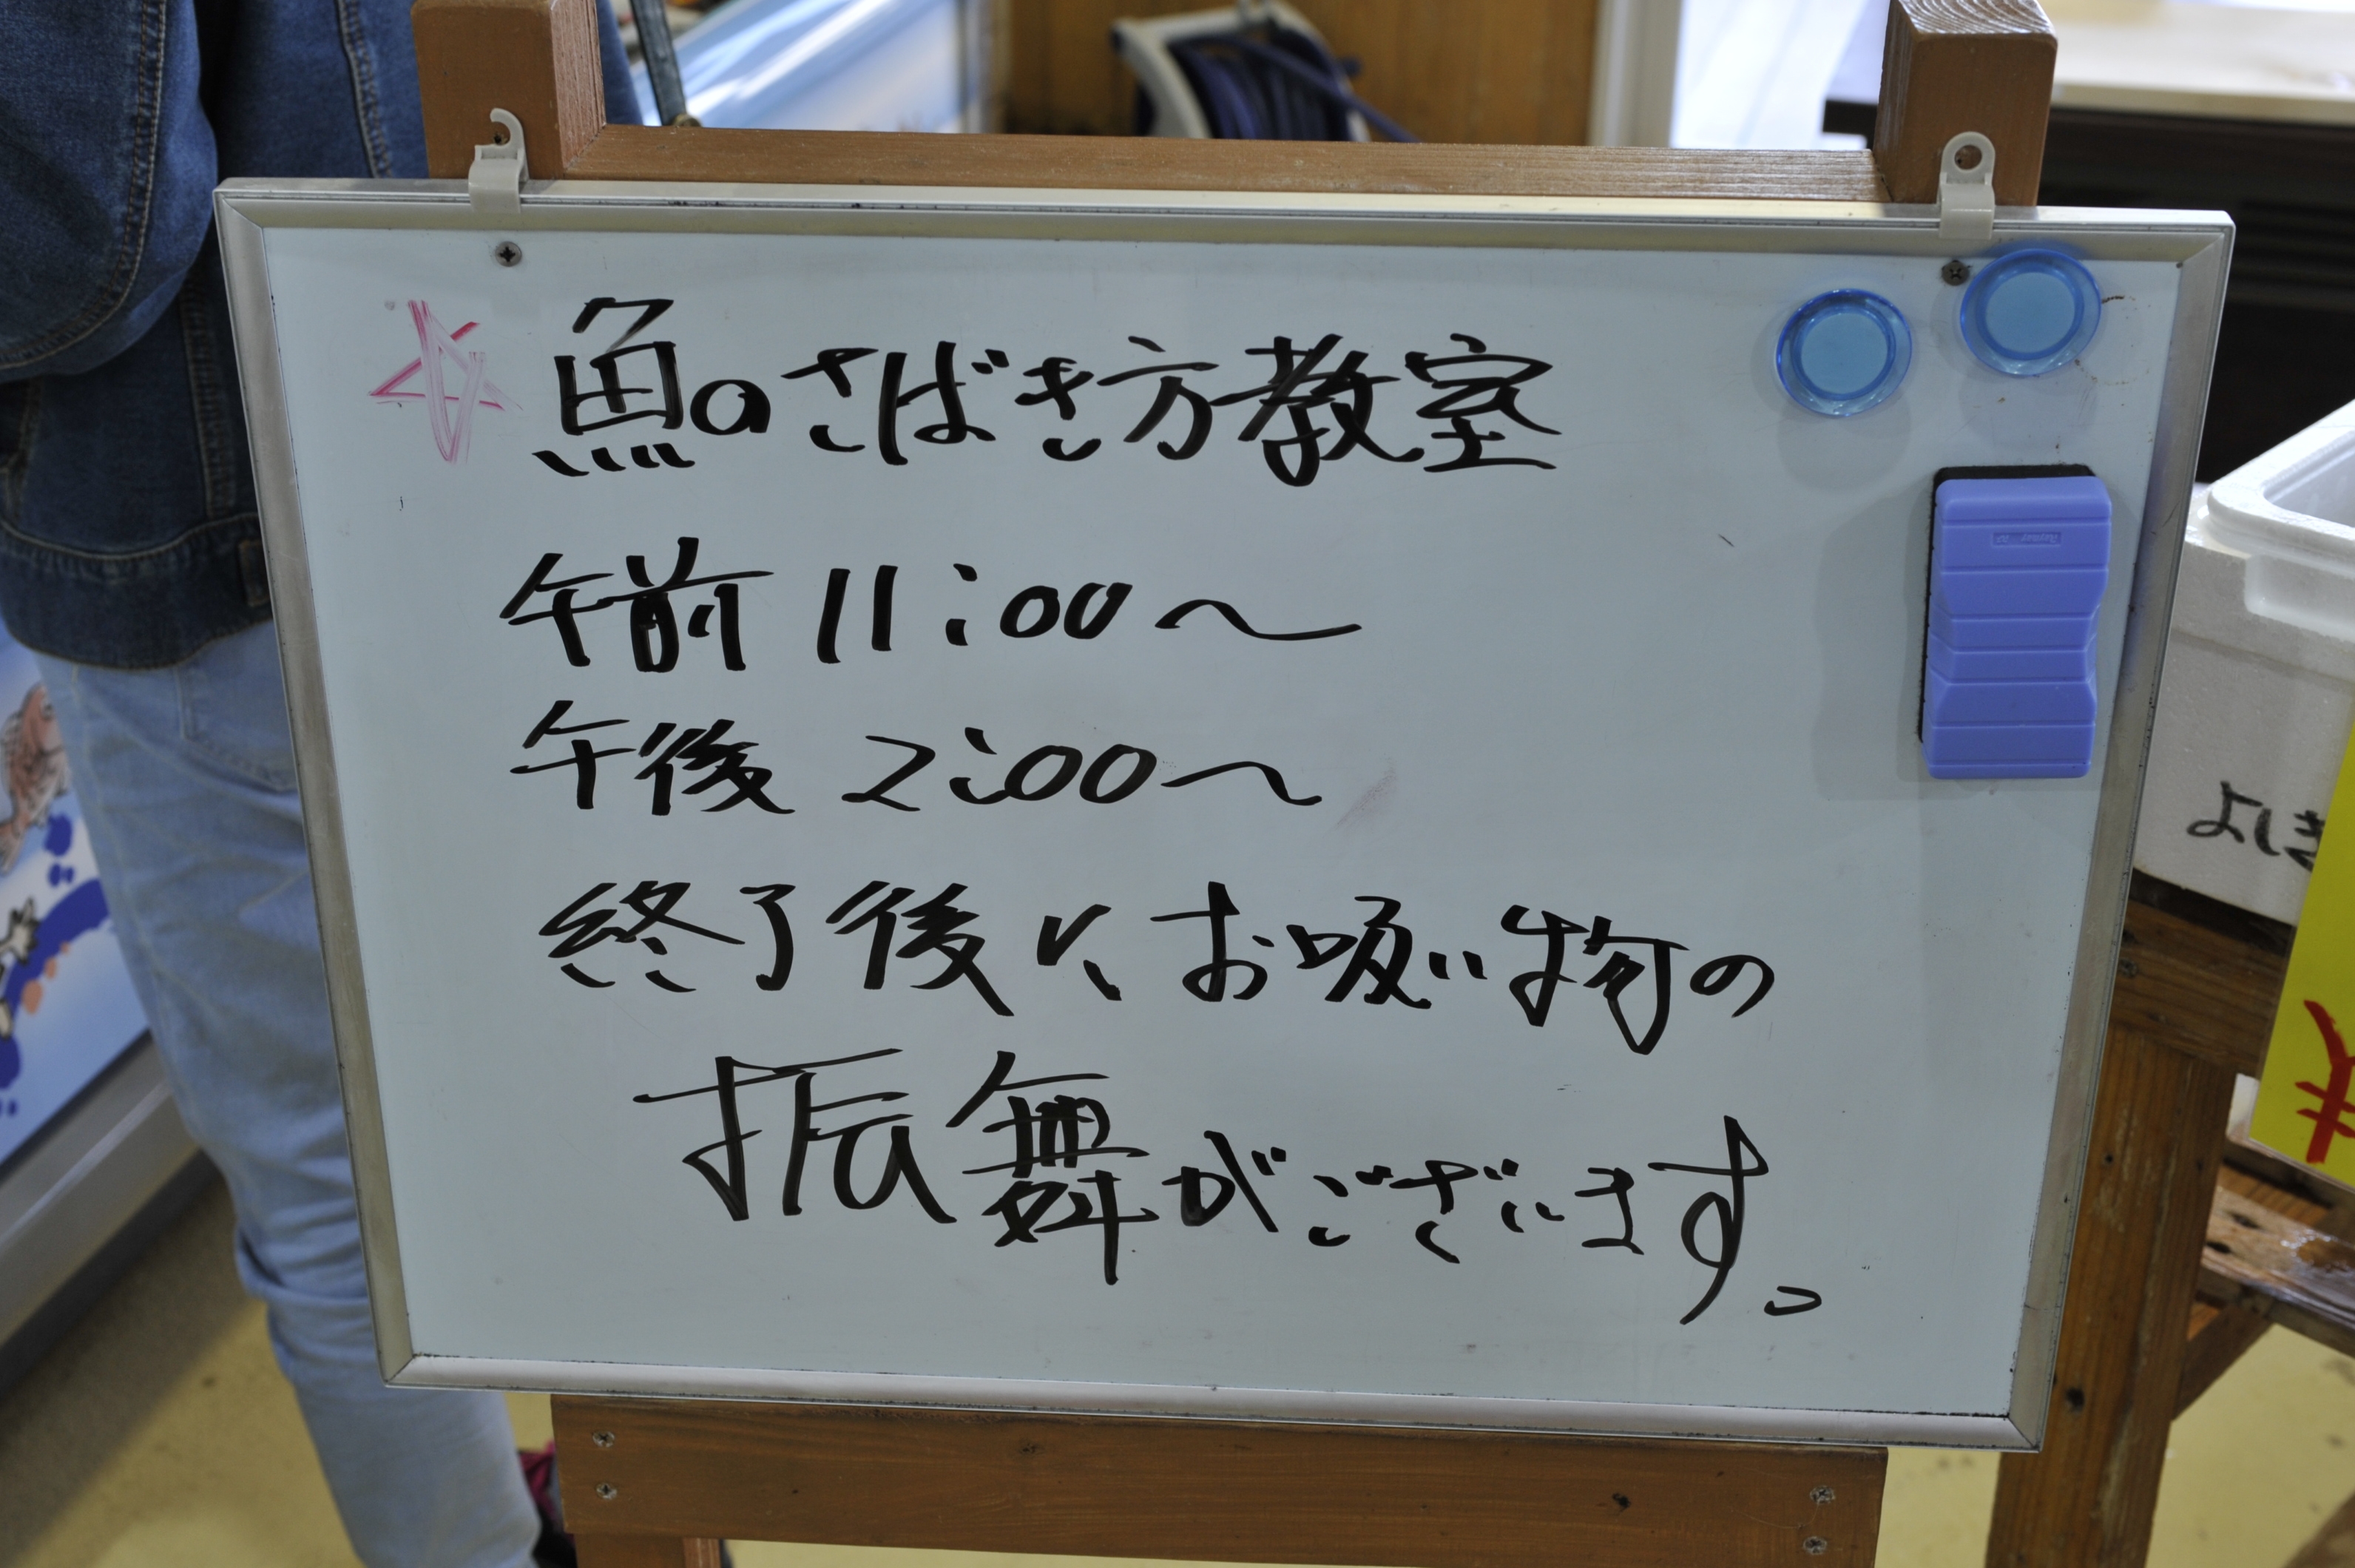 ☆魚のさばき方教室
午前 11:00〜
午後 2:00〜
終了後に、お吸い物の
振舞がございます。
¥